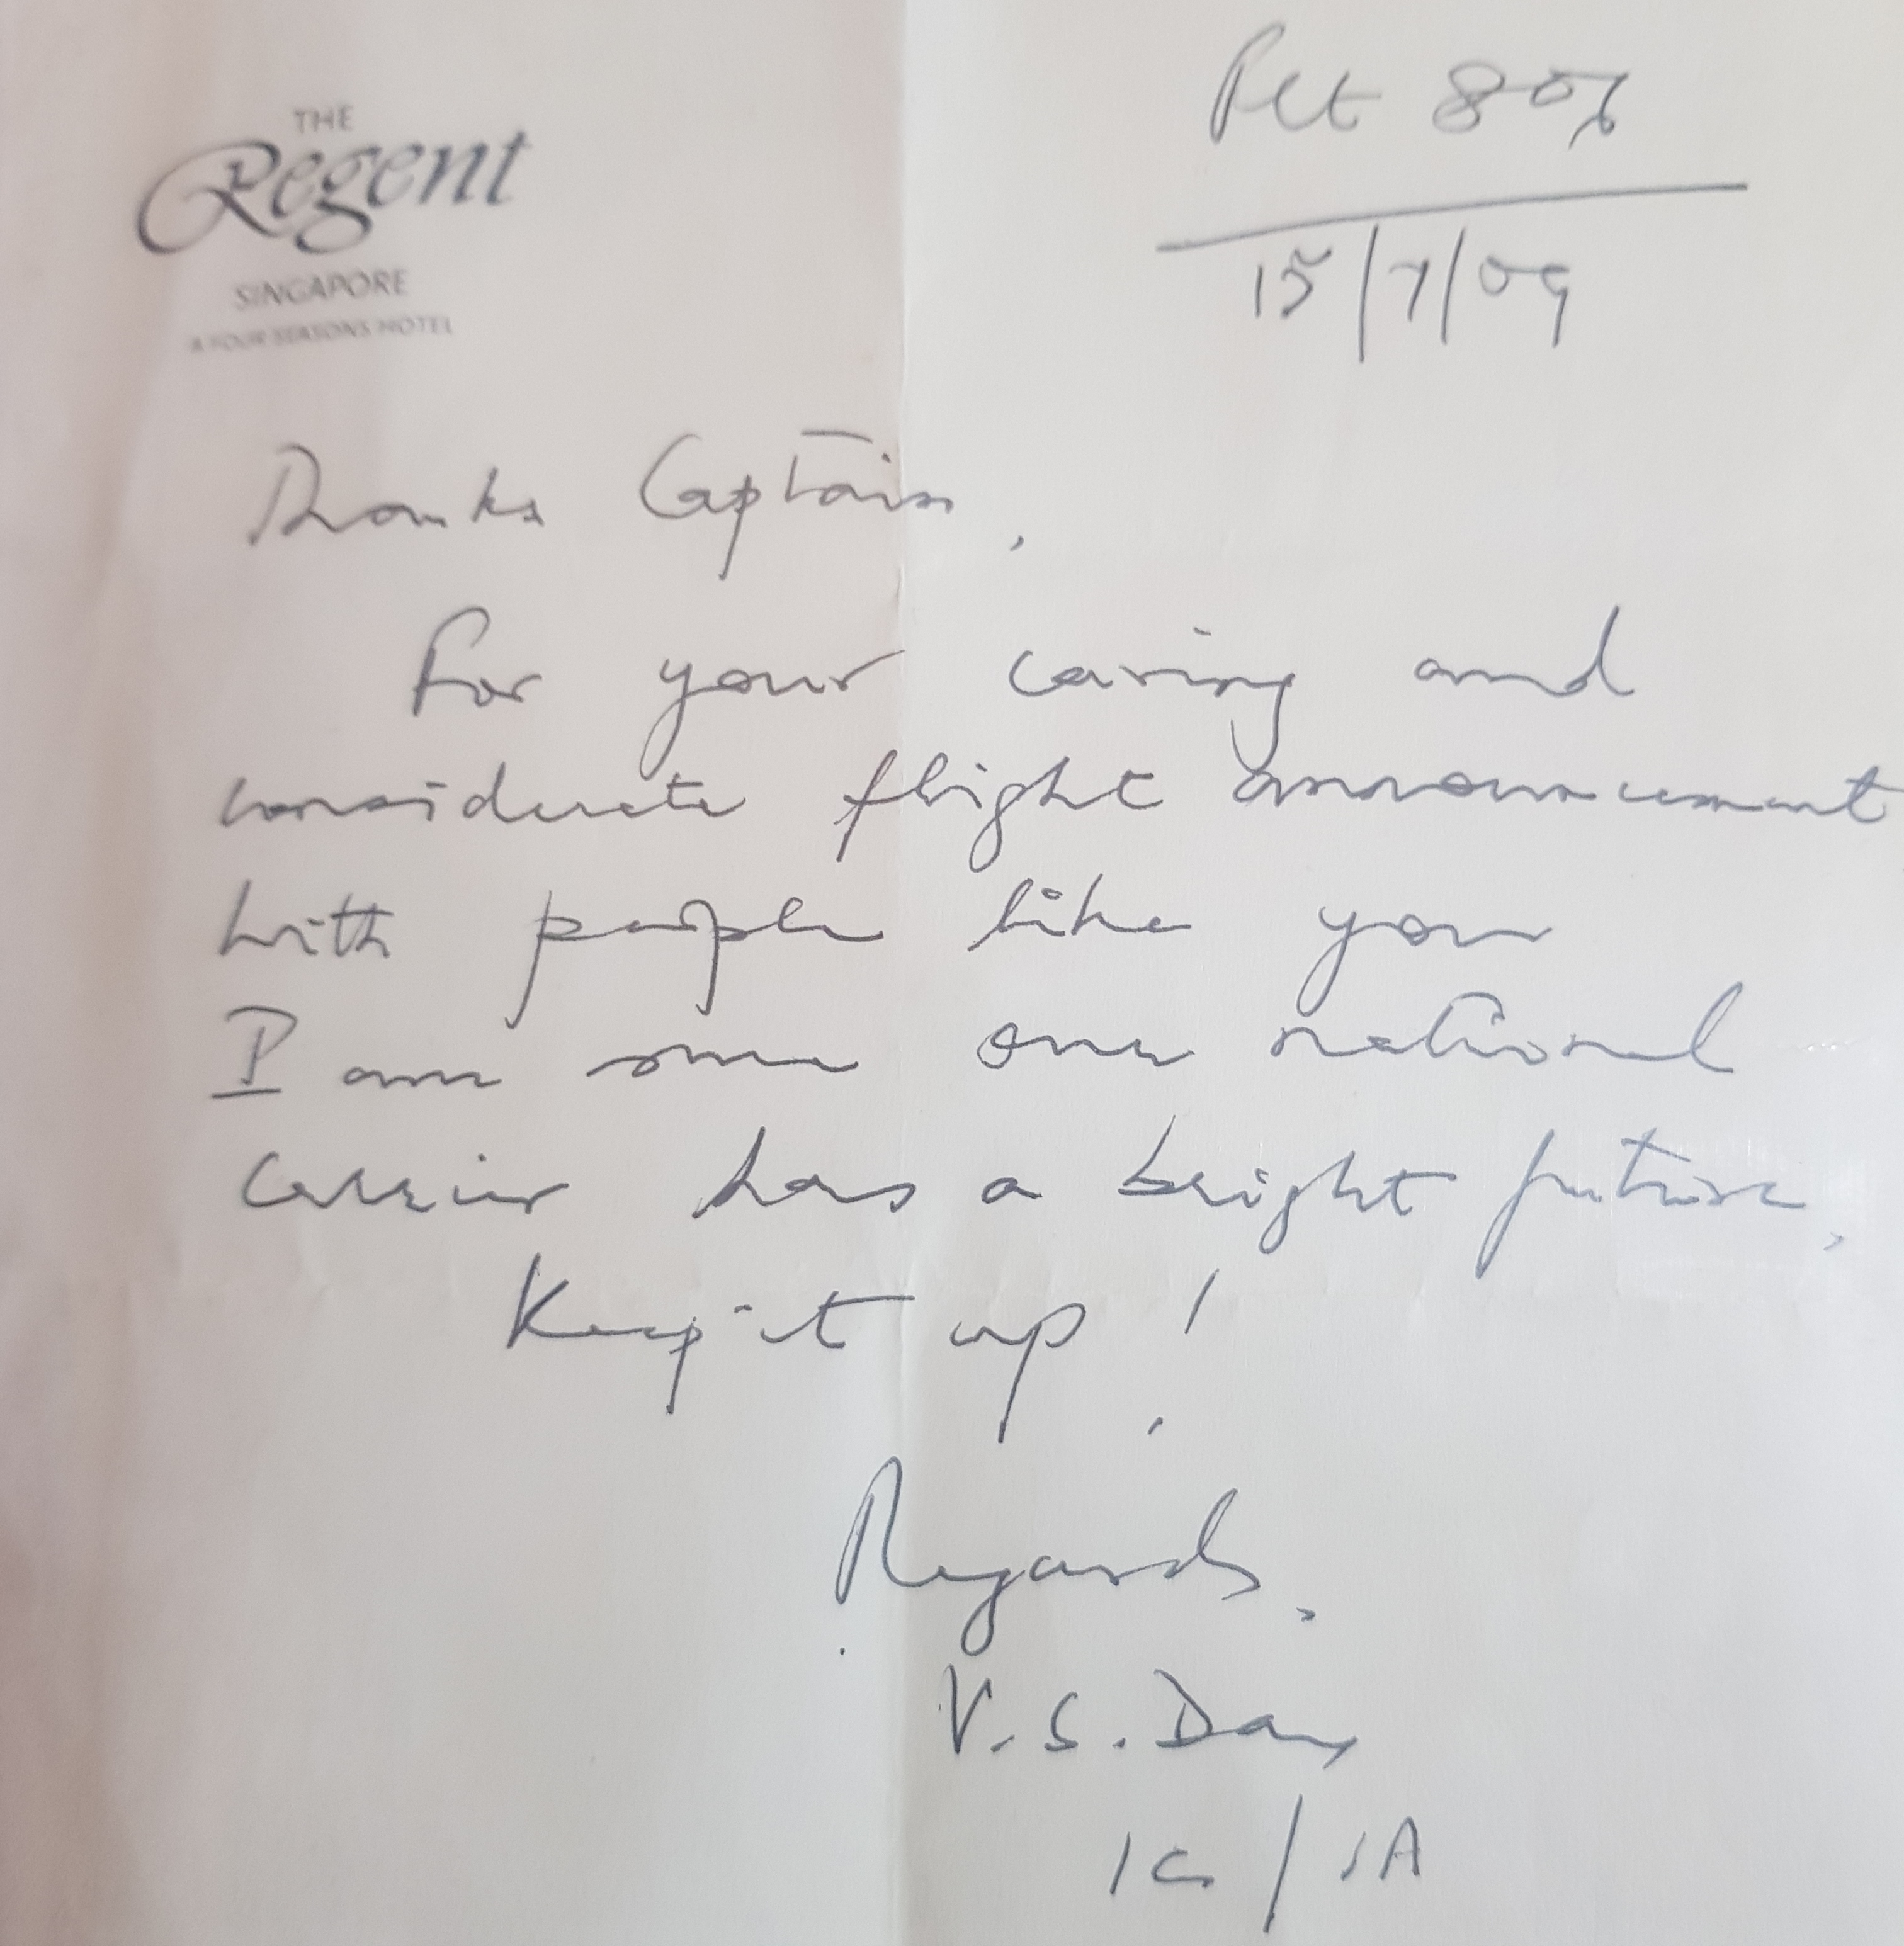 THE
Regent
SINGAPORE
A FOUR SEASONS HOTEL
Flt 807
15/7/09
Thanks Captain,
For your caring and
considerate flight announcement
with people like you
I am sure our national
carrier has a bright future,
Keep it up!
Regards,
V. S. Das
/ 1A